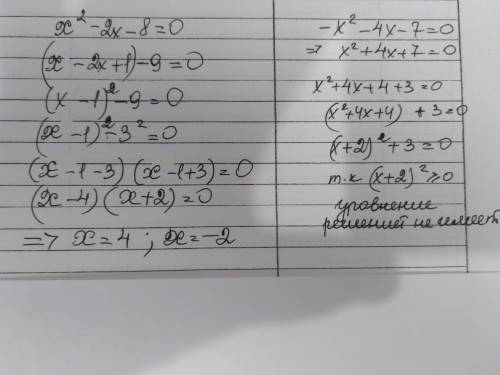 x² - 2x - 8 = 0
(x - 2x + 1) - 9 = 0
(x - 1)² - 9 = 0
(x - 1)² - 3² = 0
(x - 1 - 3) (x - 1 + 3) = 0
(x - 4) (x + 2) = 0
=> x = 4 ; x = -2
-x² - 4x - 7 = 0
=> x² + 4x + 7 = 0
x² + 4x + 4 + 3 = 0
(x² + 4x + 4) + 3 = 0
(x + 2)² + 3 = 0
т.к (x + 2)² ≥ 0
уровнение
решений не имеет